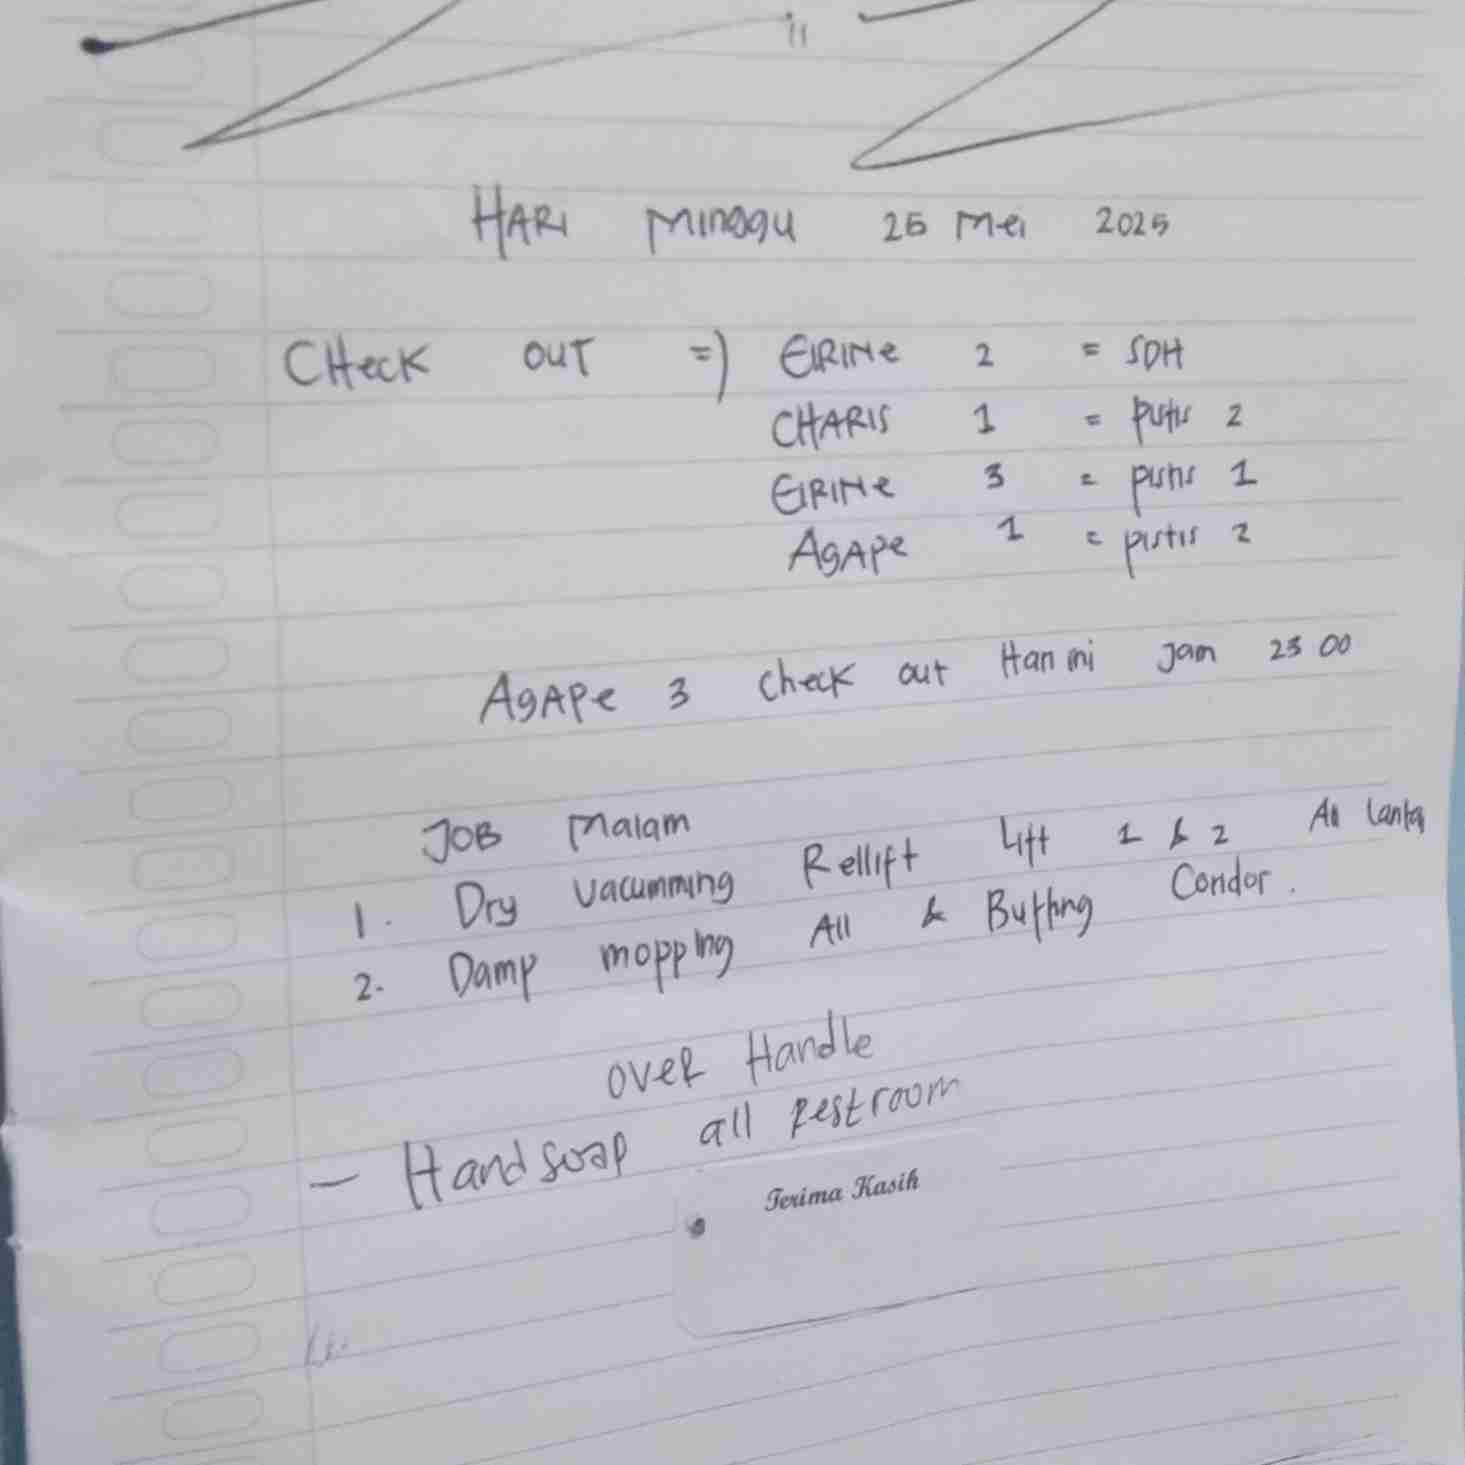 HARI Minggu 25 Mei 2025
CHeck OUT =) EIRINe 2 = SDH
CHARIS 1 = pistis 2
EIRINe 3 = pistis 1
AgApe 1 = pistis 2
AgApe 3 check out Hari ini Jam 23 00
JOB Malam
1. Dry vacumming Rellift Lift 1 & 2 All Lantai
2. Damp mopping All & Buffing Condor.
over Handle
- Handsoap all Restroom
Terima Kasih